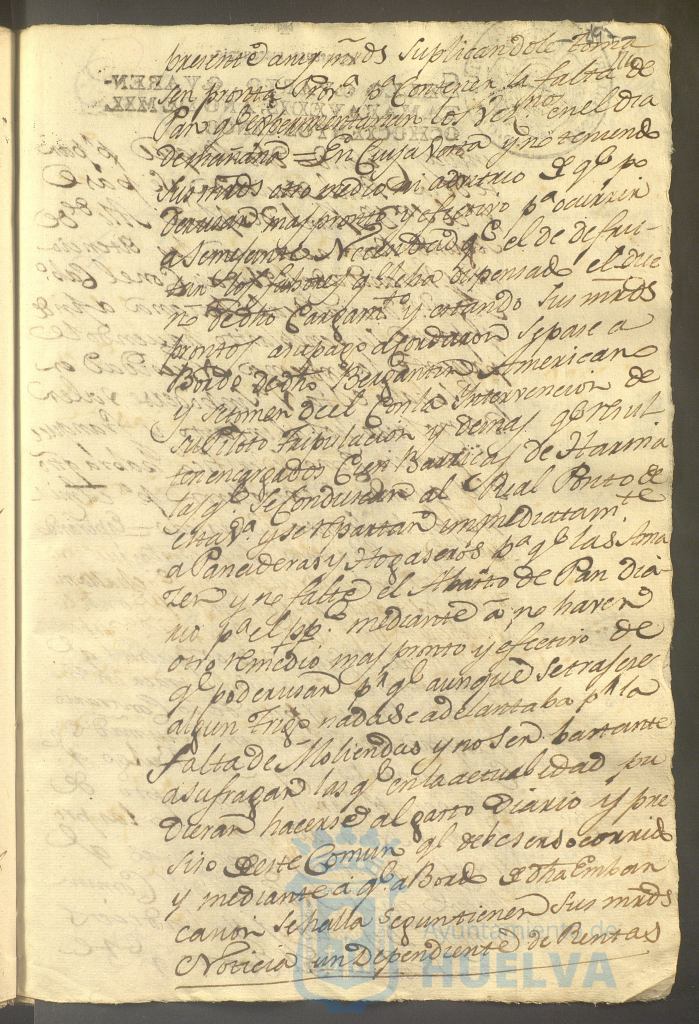 presente a mys mrds suplicandole toma
sen pronta Prov.a p.a Contener la falta de
Pan q.e experimentarian los Vez.nos en el dia
de mañana = En Cuya Vista y no teniendo
sus mrds otro medio ni advitrio de q.e po
der usar mas pronto y efectivo p.a ocurrir
a semejante Necesidad q.e el de disfru-
tar los fabores q.e le ha dispensado el due
ño de dho Cargam.to y estando sus mrds
prontos a su pago acordaron se pase a
Bordo de dho Bergantin Americano
y se tomen de el Con la Intervencion de
su Piloto Tripulacion y demas q.e resul
ten encargados Cien Barricas de Harina
las q.e se Conduciran al Real Posito de
esta V.a y se repartan immediatam.te
a Panaderas y Hogaseros p.a q.e las Ama
zen y no falte el Abasto de Pan dia-
rio p.a el pp.co mediante a no haver
otro remedio mas pronto y efectivo de
q.e poder usar p.r q.e aunque se trajese
algun Trigo nada se adelantaba p.r la
falta de Moliendas y no ser bastante
a sufragar las q.e en la actualidad pu
dieran hacerse al gasto Diario y pre
siso de este Comun q.l debe ser socorrido
y mediante a q.e a Bordo de dha Embar
cacion se halla segun tienen sus mrds
Noticia un Dependiente de Rentas
Ayuntamiento de
HUELVA